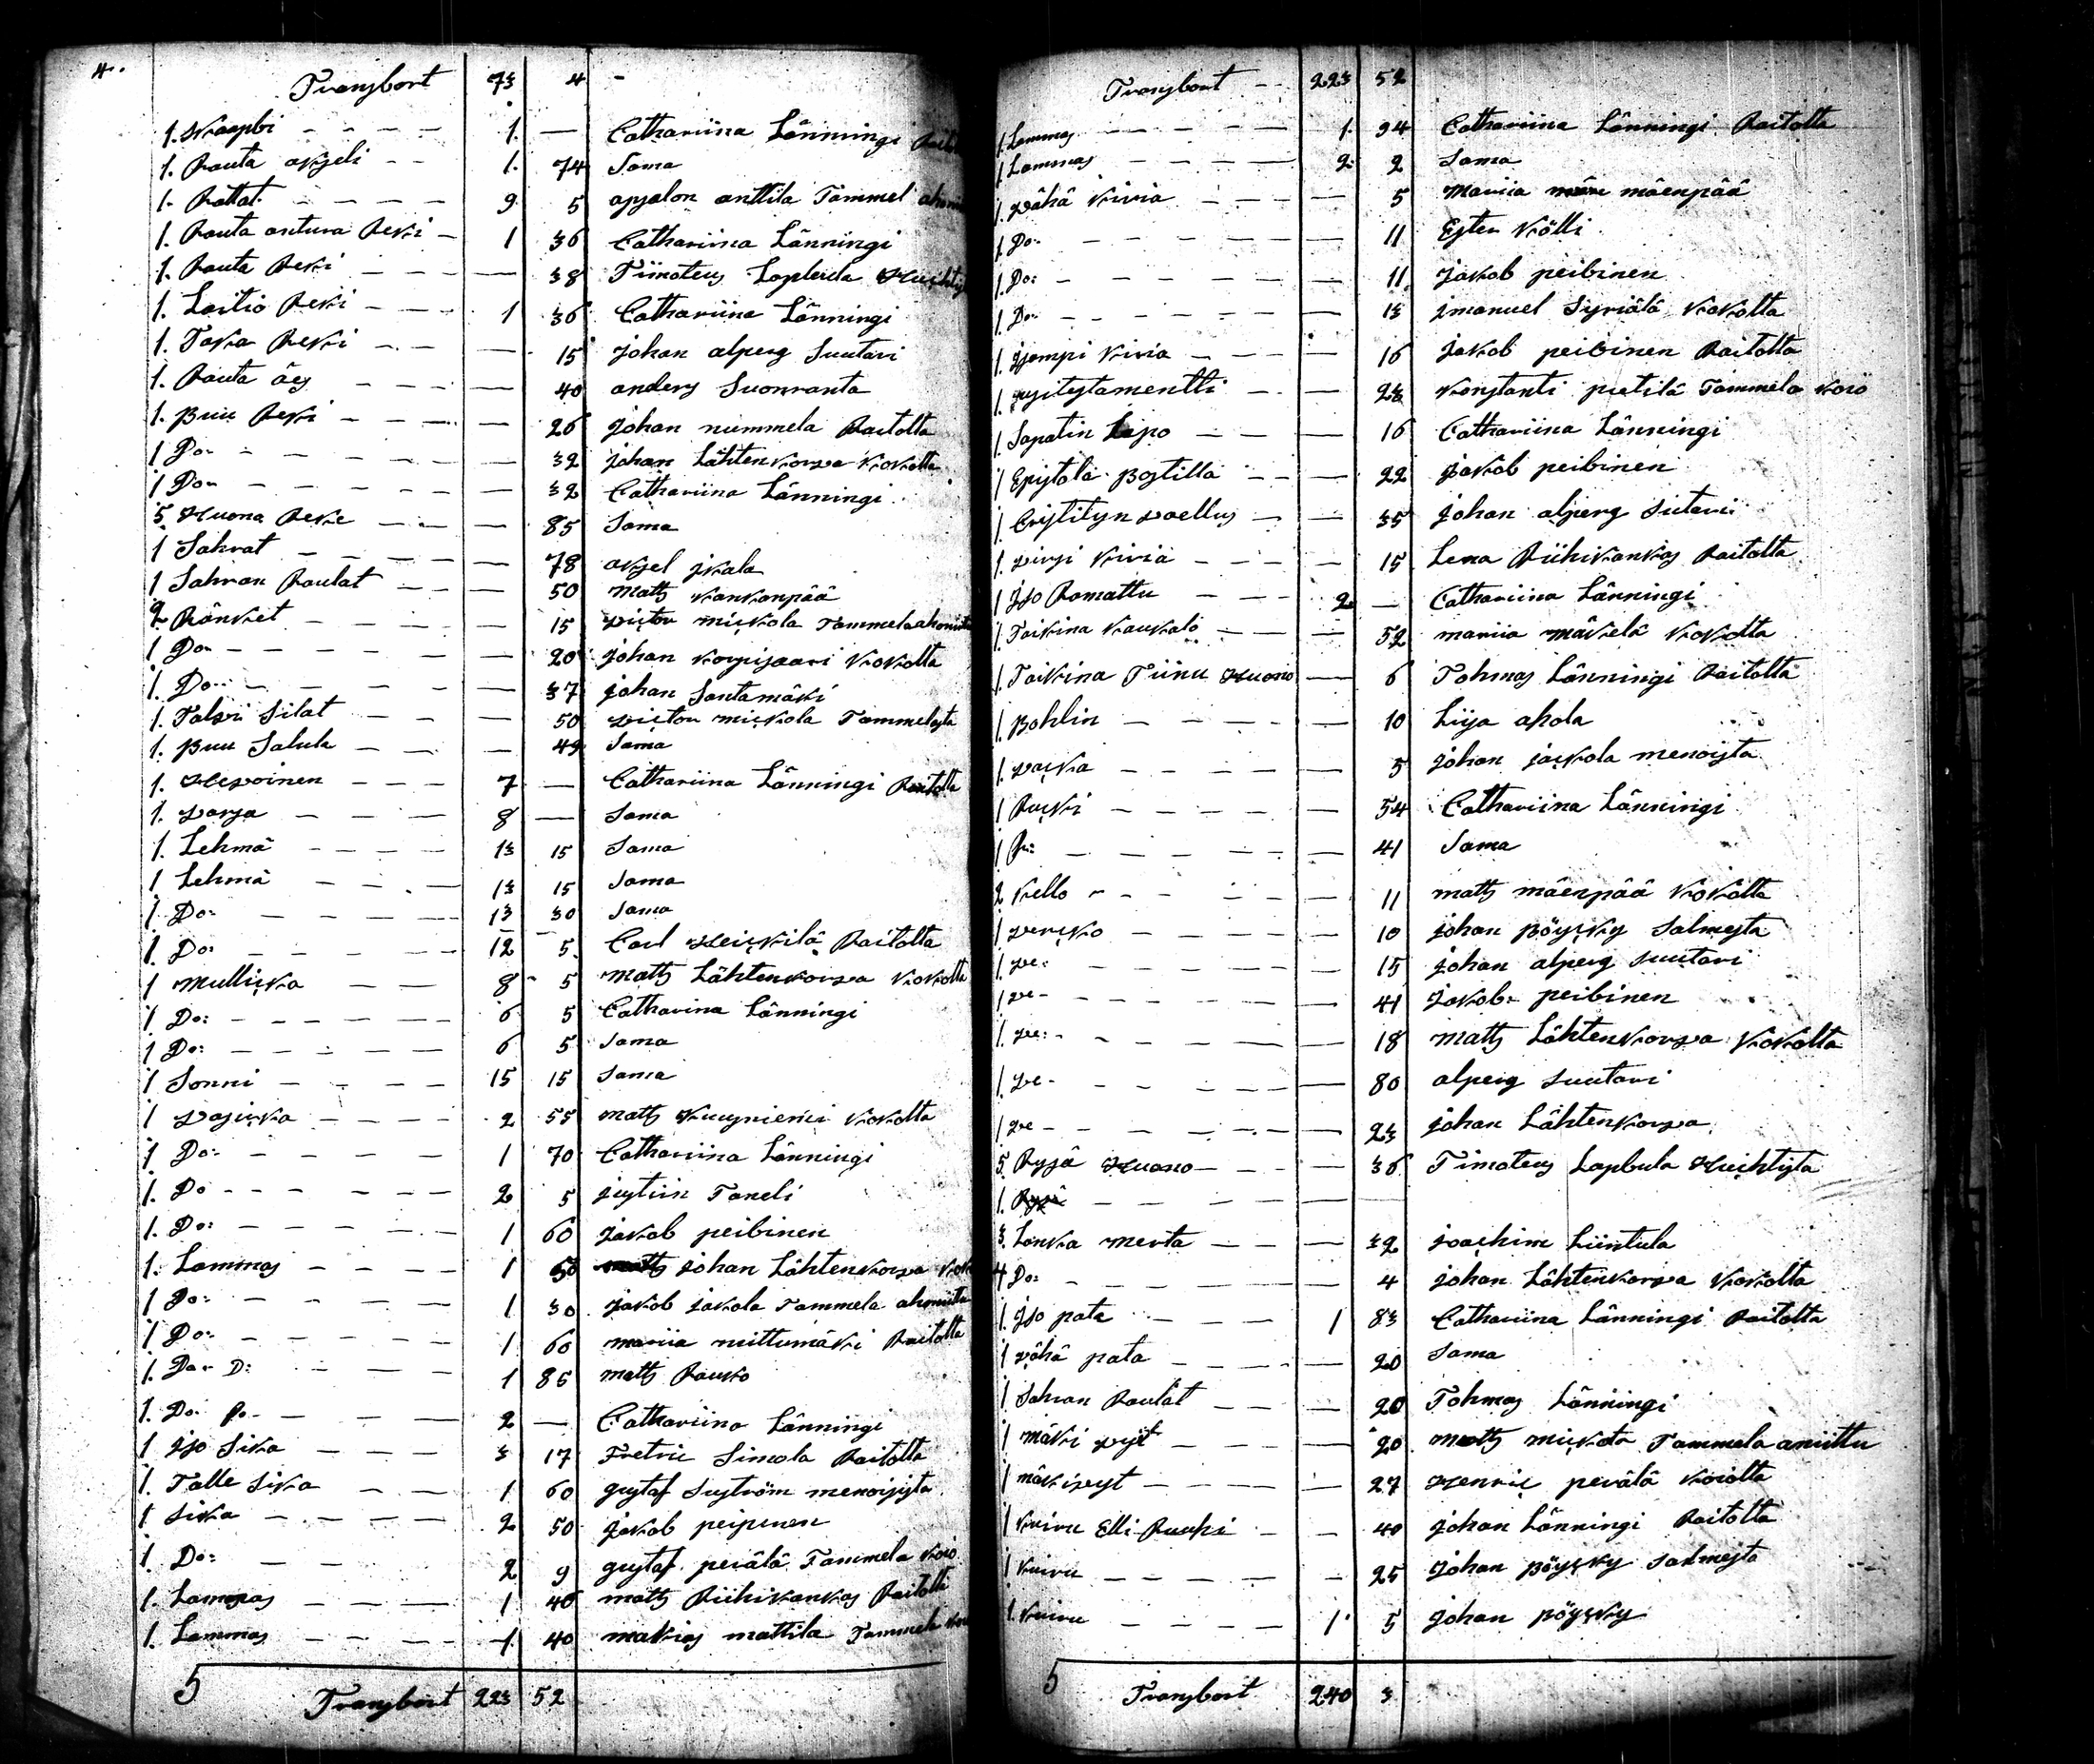 4.
Transbort 73 4 -
1. Kaappi - - - - 1. — Cathariina Länningi
1. Rauta akseli - - 1. 74 Sama
1. Rattat - - - - 9 5 apsalon anttila Tammel
1. Rauta antura Reki - 1 36 Cathariina Länningi
1. Rauta Reki - - - — 38 Tiimoteus
1. Laitio Reki - - - 1 36 Cathariina Länningi
1. Taka Reki - - - — 15 Johan alperg Suutari
1. Rauta äes - - - — 40 anders Suonranta
1. Puu Reki - - - — 26 Johan nummela Raitolta
1 Do - - - - - — 32 johan Lähtenkorva Kokolta
1 Do - - - - - — 32 Cathariina Länningi
5. Huona Reke - - - — 85 Sama
1 Sahrat - - - - — 78 aksel jkala
1 Sahran Raulat - - — 50 Matts Kankanpää
2 Ränket - - - - — 15 victor mickola Tammela
1 Do - - - - - — 20 Johan Korpisaari Kokolta
1. Do - - - - — 37 johan Santamäki
1. Talvi Silat - - - — 50 victor mickola Tammelasta
1. Puu Satula - - - — 49 Sama
1. Hevoinen - - - 7 — Cathariina Länningi Raitolta
1. varsa - - - 8 — Sama
1. Lehmä - - - - 13 15 Sama
1 Lehmä - - - - 13 15 Sama
1. Do: - - - - 13 30 Sama
1. Do: - - - - 12 5 Carl Heickilä Raitolta
1 mullicka - - 8 5 matts Lähtenkorva Kokolta
1 Do: - - - - - 6 5 Catharina Länningi
1 Do: - - - - - 6 5 Sama
1 Sonni - - - - 15 15 Sama
1 vasicka - - - - 2 55 matts Kuusniemi Kokolta
1 Do: - - - - 1 70 Cathariina Länningi
1. Do - - - - - 2 5 justiin Taneli
1. Do: - - - - 1 60 jakob peibinen
1. Lammas - - - - 1 50 johan Lähtenkorva
1 Do: - - - - 1 30 jakob jakola Tammela
1 Do: - - - - - 1 60 mariia niittumäki Raitolta
1. Do D: - - - 1 85 matts Rauko
1. Do - - - 2 — Cathariina Länningi
1 jso Sika - - - 3 17 Fretric Simola Raitolta
1. Talle Sika - - - 1 60 gustaf Suström menoisista
1 Sika - - - - 2 50 jakob peipinen
1. Do: - - 2 9 gustaf perälä Tammela
1. Lammas - - - 1 46 matts Riihikankas Raitolta
1. Lammas - - - - 1 40 makias mattila Tammela
5
Transbort 223 52
Transbort - - 223 52
1 Lammas - - - - 1 94 Cathariina Länningi Raitolta
1 Lammas - - - - 2 2 Sama
1. vähä Kiria - - - — 5 Mariia mäenpää
1 Do - - - - - — 11 Ester Kölli
1. Do: - - - - - — 11 jakob peibinen
1. Do - - - - - — 13 jmanuel Syriälä Kokolta
1. jompi Kiria - - - — 16 jakob peibinen Raitolta
1. uusitestamentti - - — 23 Konstanti pietilä Tammela
1 Sapatin Lepo - - - — 16 Cathariina Länningi
1 Epistola Postilla - - — 22 jakob peibinen
1 Cristityn vaellus - — 35 johan alperg Sutari
1. virsi Kiria - - - - — 15 Lena Riihikankas Raitolta
1 jso Ramattu - - - 2 — Cathariina Länningi
1. Taikina Kaukalo - - - — 52 mariia mäkelä Kokolta
1. Taikina Tiinu Huono — 6 Tohmas Länningi Raitolta
1. Pohlin - - - - — 10 Liisa ahola
1. vacka - - - - — 5 johan jackola menoista
1 Rucki - - - - — 54 Cathariina Länningi
1 Ru: - - - - - — 41 Sama
2 Kello - - - - — 11 matts mäenpää Kokolta
1 vercko - - - - — 10 johan Pöyscky Salmesta
1. ve: - - - - - — 15 johan alperg suutari
1 ve - - - - - - — 41 jakob peibinen
1. ve: - - - - - — 18 matts Lähtenkorva Kokolta
1 ve - - - - - — 80 alperg suutari
1 ve - - - - - — 23 johan Lähtenkorva
5. Rysä Huono - - - — 36 Timoteus Lapbula Huihtista
1. Rysä - - - - —
3. Lanka merta - - — 32 joachim Liintula
4 Do: - - - - - — 4 johan Lähtenkorva Kokolta
1. jso pata - - - 1 83 Cathariina Länningi Raitolta
1 vähä pata - - - - — 20 Sama
1 Sahran Raulat - - — 20 Tohmas Länningi
1 mäki vyöt - - - - 20 matts mickola Tammela
1 mäkivyöt - - - - — 27 Henric perälä
1 Kuiru Elli Ruuhi - - 40 johan Länningi Raitolta
1 Kuiru - - - - - 25 johan Pöyscky Salmesta
1. Kuiru - - - - 1 5 johan pöyscky
5
Transbort 240 3